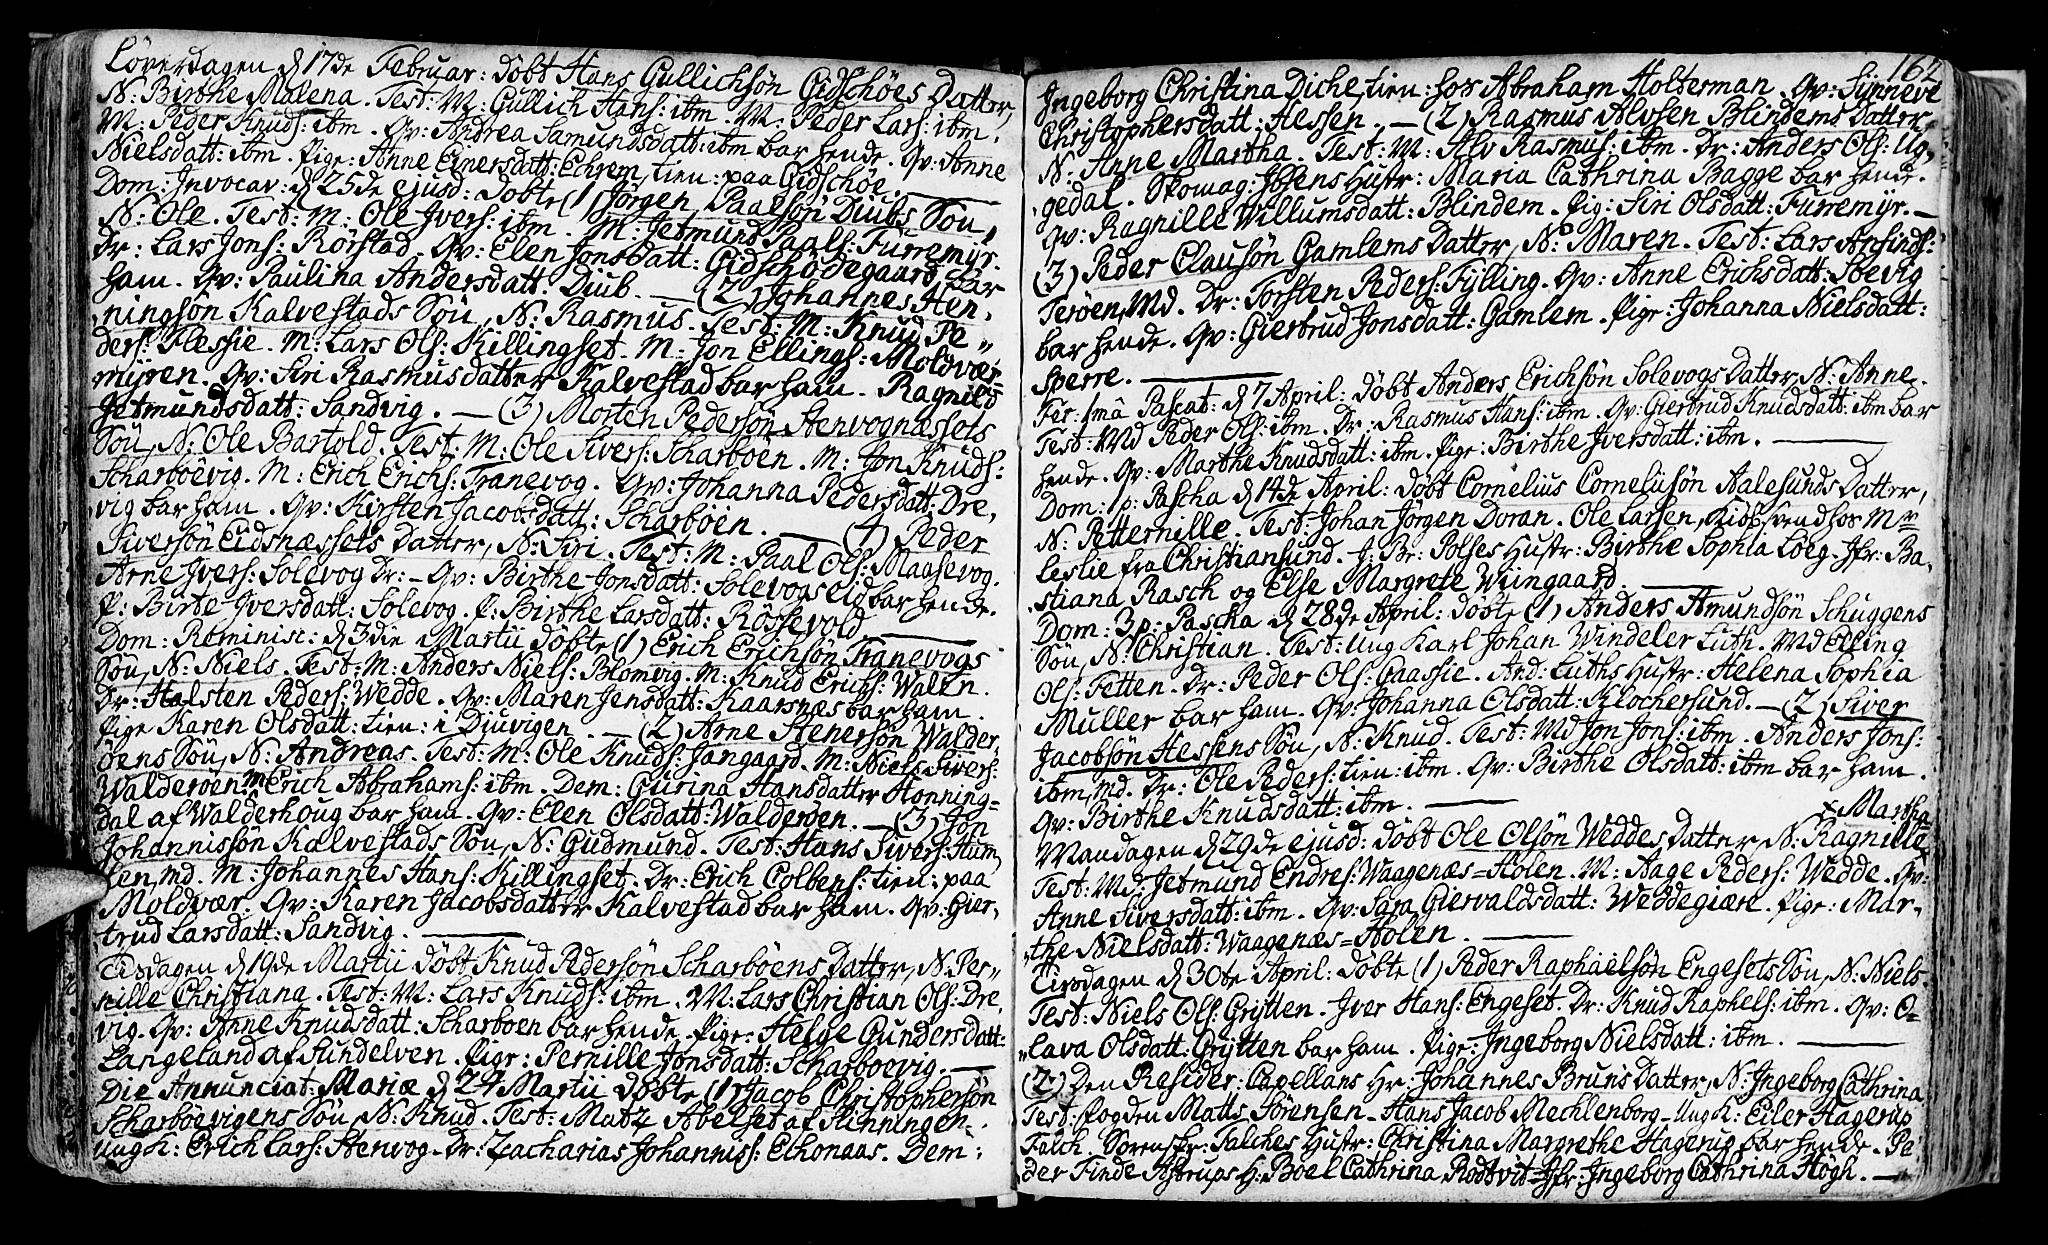 Löverdagen d 17de Februar: döbt Hans Gullichsön Gidschöes Datter,
N: Birthe Malena. Test: M: Gullich Hans: ibm. M: Peder Lars: ibm.
M: Peder Knuds: ibm. Qv: Andrea Samundsdatt: ibm bar hende. Qv: Anne
Nielsdatt: ibm. Pige: Anne Einersdatt: Ehrem, tien: paa Gidschöe.
Dom: Invocav: d 25de ejusd: döbte (1) Jörgen Paalsön Diubs Sön,
N: Ole. Test: M: Ole Ivers: ibm. M: Jetmund Paals: Furremyr.
Dr: Lars Jons: Rörstad. Qv: Elen Jonsdatt: Gidschödegaard bar
ham. Qv: Paulina Andersdatt: Diub. — (2) Johannes Hen,
ningsön Kalvestads Sön, N: Rasmus. Test: M: Knud Pe„
ders: Flessie. M: Lars Ols: Killingset. M: Jon Ellings: Moldvær
myren. Qv: Siri Rasmusdatter Kalvestad bar ham. Ragnild
Jetmundsdatt: Sandvig. — (3) Morten Pedersön Stenvognæssets
Sön, N: Ole Bartold. Test: M: Ole Sivers: Scharböen. M: Jon Knuds:
Scharböevig. M: Erich Erichs: Tranevog. Qv: Johanna Pedersdatt: Dre,
vig bar ham. Qv: Kirsten Jacobsdatt: Scharböen. — (4) Peder
Siversön Eidsnæssets Datter, N: Siri. Test: M: Paal Ols: Maasevog.
Arne Ivers: Solevog Dr: – Qv: Birthe Jonsdatt: Solevogseid bar hende.
P: Birte Iversdatt: Solevog. P: Birthe Larsdatt: Rössevold
Dom: Reminisc: d 3die Martii döbte (1) Erich Erichsön Tranevogs
Sön, N: Niels. Test: M: Anders Niels: Blomvig. M: Knud Erichs: Walen.
Dr: Halsten Peders: Wedde. Qv: Maren Jensdatt: Kaarsnæs bar ham.
Pige Karen Olsdatt: tien: i Diuvigen. — (2) Arne Stenersön Walder,
öens Sön, N: Andreas. Test: M: Ole Knuds: Jangaard. M: Niels Sivers:
Walderöen. M Erich Abrahams: ibm. Dem: Gurina Hansdatter Honning=
dal af Walderhoug bar ham. Qv: Elen Olsdatt: Walderöen. — (3) Jon
Johannissön Kalvestads Sön, N: Gudmund. Test: Hans Sivers: Hum,
len, md. M: Johannes Hans: Killingset. Dr: Erich Colbens: tien: paa
Moldvær. Qv: Karen Jacobsdatter Kalvestad bar ham. Qv: Gier,
trud Larsdatt: Sandvig.
Tisdagen d 19de Martii döbt Knud Pedersön Scharböens Datter, N: Per,
nille Christiana. Test: M: Lars Knuds: ibm. M: Lars Christian Ols: Dre,
vig. Qv: Anne Knudsdatt: Scharboen bar hende. Pige: Helge Gundersdatt:
Langeland af Sundelven. Pige: Pernille Jonsdatt: Scharboevig. —
Die Annunciat: Mariæ d 24 Martii döbte (1) Jacob Christophersön
Scharböevigens Sön, N: Knud. Test: Matz Abelset af Hinningen.
Ungk: Erich Lars: Stenvog. Dr: Zacharias Johanniss: Elhonaas. Dem:
162
Ingeborg Christina Diche, tien: hos Abraham Holterman. Qv: Sinneve
Christophersdatt: Hessen. — (2) Rasmus Alvsen Blindems Datter,
N: Anne Martha. Test: M: Alv Rasmus: ibm. Dr: Anders Ols: Ug,
gedal. Skomag: Ibsens Hustr: Maria Cathrina Bagge bar hende.
Qv: Ragnille Willumsdatt: Blindem. Pig: Siri Olsdatt: Furremyr. —
(3) Peder Clausön Gamlems Datter, N: Maren. Test: Lars Arsinds:
Teröen, Md. Dr: Torsten Peders: Fylling. Qv: Anne Erichsdatt: Søevig
bar hende. Qv: Giertrud Jonsdatt: Gamlem. Pige: Johanna Nielsdatt:
Sperre. —
Fer: 1mâ Pascat: d 7 April: döbt Anders Erichsön Solevogs Datter, N: Anne.
Test: Md Peder Ols: ibm. Dr: Rasmus Hans: ibm. Qv: Giertrud Knudsdatt: ibm bar
hende. Qv: Marthe Knudsdatt: ibm. Pige: Birthe Iversdatt: ibm. —
Dom: 1 p: Pascha d 14de April: döbt Cornelius Corneliusön Aalesunds Datter,
N: Petternille. Test: Johan Jörgen Doran. Ole Larsen, Kiöbsvend hos Mr
Leslie fra Christiansund. J: Br: Polses Hustr: Birthe Sophia Löeg. Jfr: Ba„
stiana Rasch og Else Margrete Wiingaard. —
Dom: 3 p: Pascha d 28de April: döbte (1) Anders Amundsön Schuggens
Sön, N: Christian. Test: Ung Karl Johan Windeler Luth. Md Elling
Ols: Fetten. Dr: Peder Ols: Gaasie. And: Luths Hustr: Helena Sophia
Muller bar ham. Qv: Johanna Olsdatt: Klochersund. — (2) Siver
Jacobsön Hessens Sön, N: Knud. Test: Md Jon Jons: ibm. Anders Jons:
ibm, Md. Dr: Ole Peders: tien: ibm. Qv: Birthe Olsdatt: ibm bar ham.
Qv: Birthe Knudsdatt: ibm. —
+ Martha
Mandagen d 29de ejusd: döbt Ole Olsön Weddes Datter, N: Ragnille +
Test: Md: Jetmund Endres: Waagenæs=Holen. M: Aage Peders: Wedde. Qv:
Anne Siversdatt: ibm. Qv: Sara Giervaldsdatt: Weddegiære. Pige: Mar,
the Nielsdatt: Waagenæs=Holen. —
Tirsdagen d 30te April: döbte (1) Peder Raphaelsön Engesets Sön, N: Niels.
Test: Niels Ols: Grytten. Iver Hans: Engeset. Dr: Knud Raphels: ibm. Qv: O=
lava Olsdatt: Grytten bar ham. Pige: Ingeborg Nielsdatt: ibm. —
(2) Den Resider: Capellans Hr: Johannes Bruns Datter, N: Ingeborg Cathrina
Test: Fogden Matts Sörensen – Hans Jacob Mechlenborg – Ungk: Eiler Hagerup
Falch. Sorenskr: Falches Hustr: Christina Margrethe Hagerup bar hende. Pe„
der Finde Astrups H: Boel Cathrina Rodtvit = Jfr: Ingeborg Cathrina Högh. —